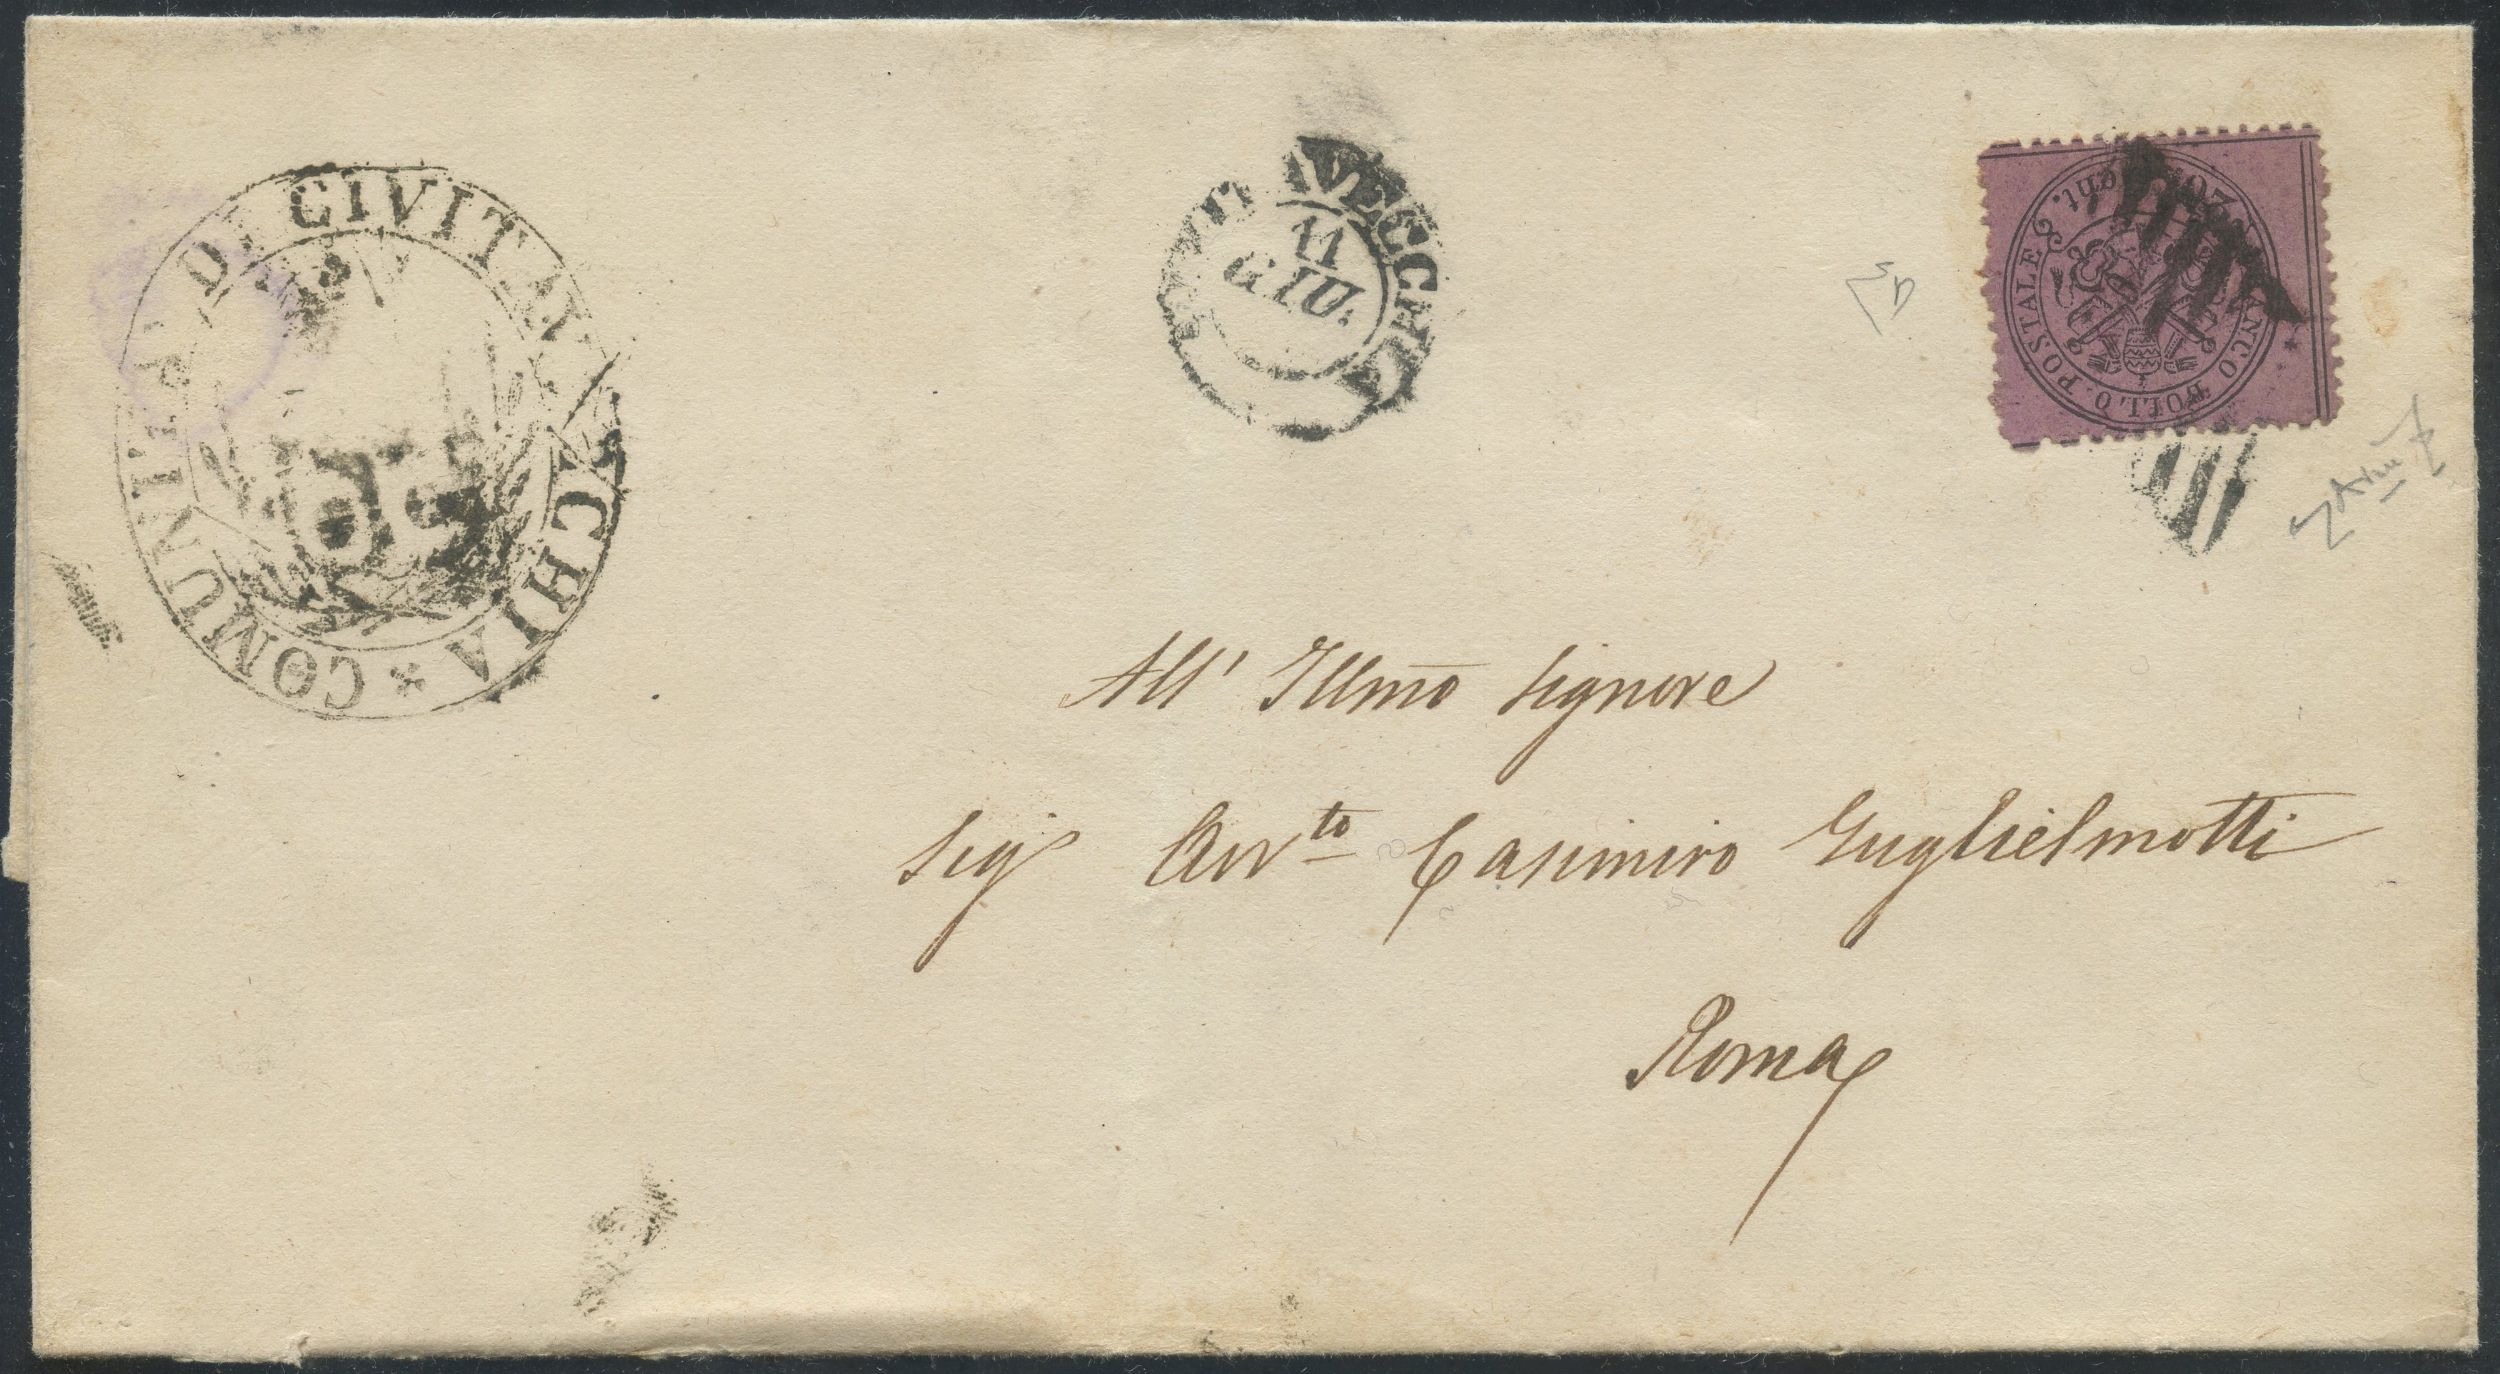 COMUNITA' DI CIVITAVECCHIA *
CIVITAVECCHIA
11
GIU.
FRANCO BOLLO POSTALE
20 Cent.
All' Illmo Signore
Sigr Avvto Casimiro Guglielmotti
Roma